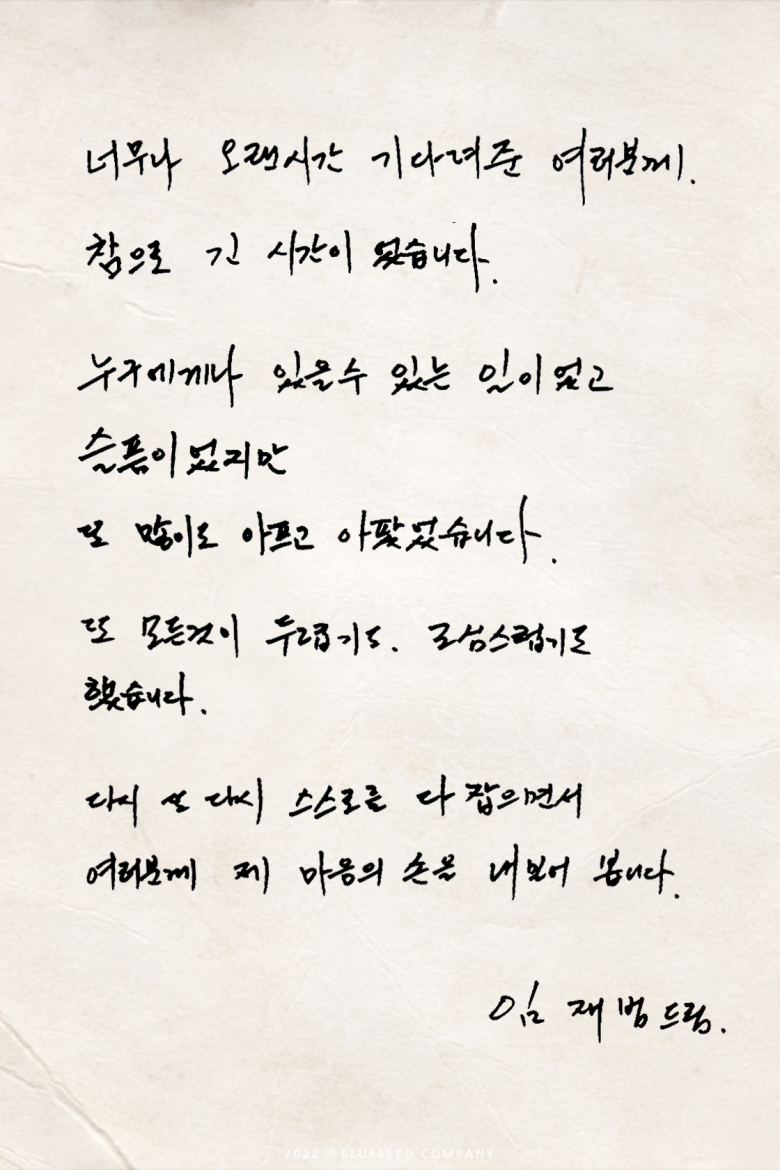 너무나 오랜시간 기다려준 여러분께.
참으로 긴 시간이 었습니다.
누구에게나 있을수 있는 일이었고
슬픔이었지만
또 많이도 아프고 아팠었습니다.
또 모든것이 두렵기도. 조심스럽기도
했습니다.
다시 또 다시 스스로를 다 잡으면서
여러분께 제 마음의 손을 내 보여 봅니다.
임 재 범 드림.
2022 ©BLUESEED COMPANY